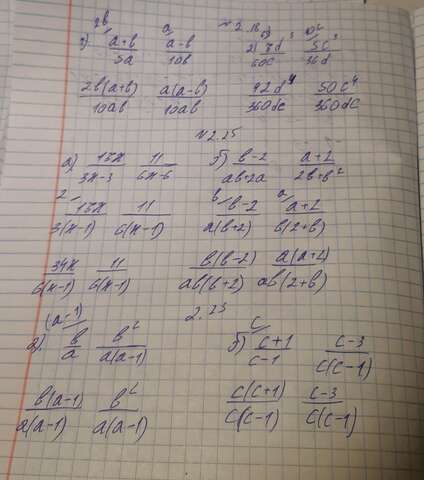 2b a № 2.18 6d³ 10c³
г) (a+b)/5a (a-b)/10b 2) 7d/60c 5c/36d
2b(a+b)/10ab a(a-b)/10ab 42d⁴/360dc 50c⁴/360dc
№ 2.25
а) 17x/(3x-3) 11/(6x-6) б) (b-2)/(ab+2a) (a+2)/(2b+b²)
2 17x/3(x-1) 11/6(x-1) b (b-2)/a(b+2) a (a+2)/b(2+b)
34x/6(x-1) 11/6(x-1) b(b-2)/ab(b+2) a(a+2)/ab(2+b)
(a-1) 2.23 c
а). b/a b²/a(a-1) б) (c+1)/(c-1) (c-3)/c(c-1)
b(a-1)/a(a-1) b²/a(a-1) c(c+1)/c(c-1) (c-3)/c(c-1)